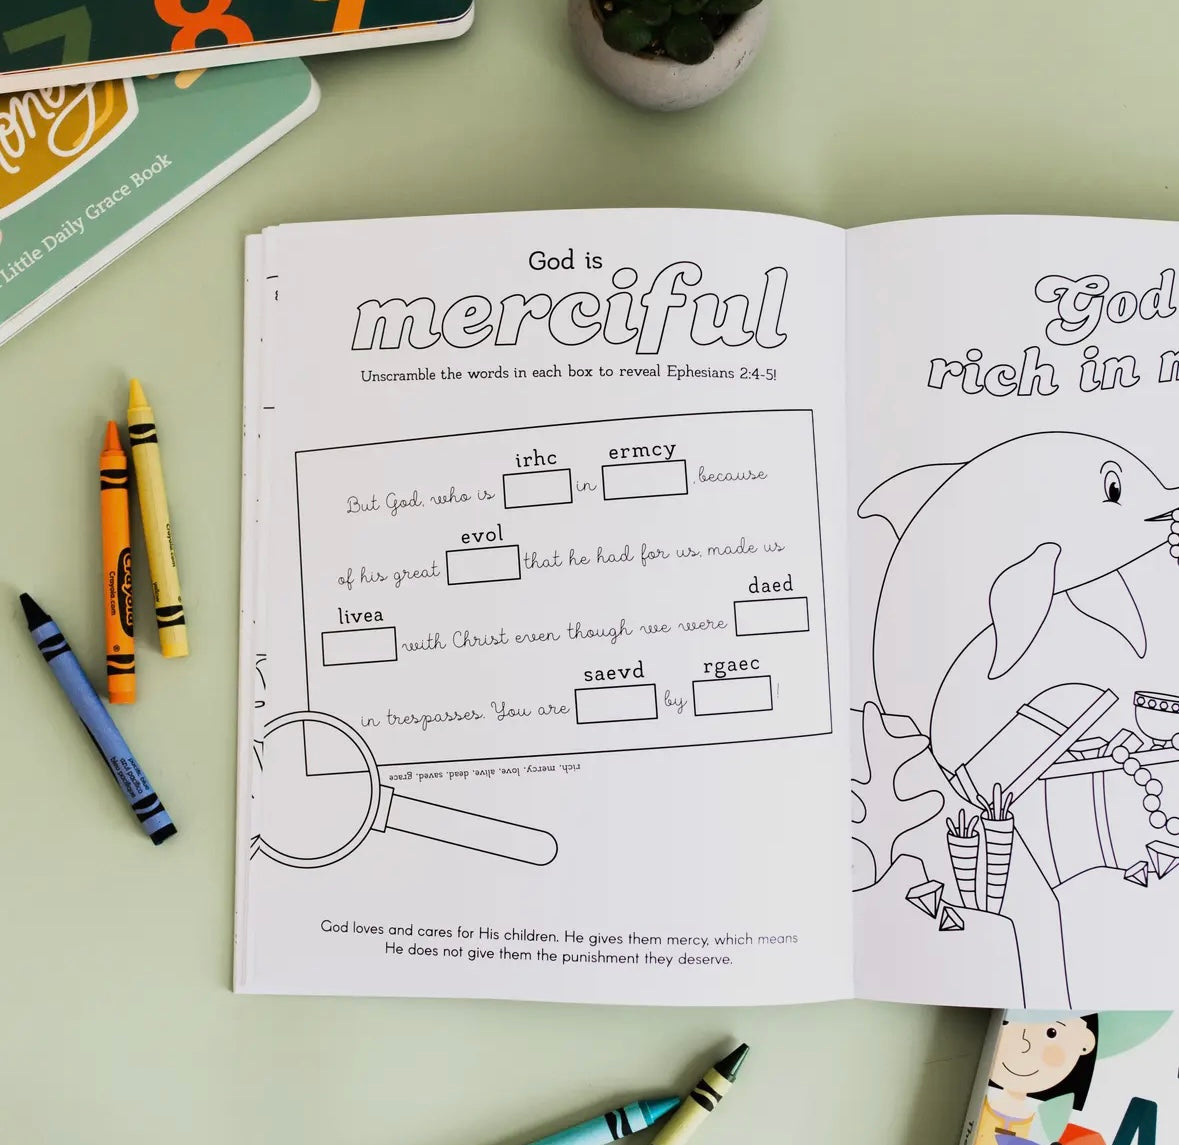 7 8 9
oney
Little Daily Grace Book
God is
merciful
Unscramble the words in each box to reveal Ephesians 2:4-5!
irhc ermcy
But God, who is in , because
evol
of his great that he had for us, made us
livea daed
with Christ even though we were
saevd rgaec
in trespasses. You are by !
rich, mercy, love, alive, dead, saved, grace
God loves and cares for His children. He gives them mercy, which means
He does not give them the punishment they deserve.
God
rich in m
Crayola
Crayola.com
Crayola.com
yellow
pacific blue
azul pacífico
bleu pacifique